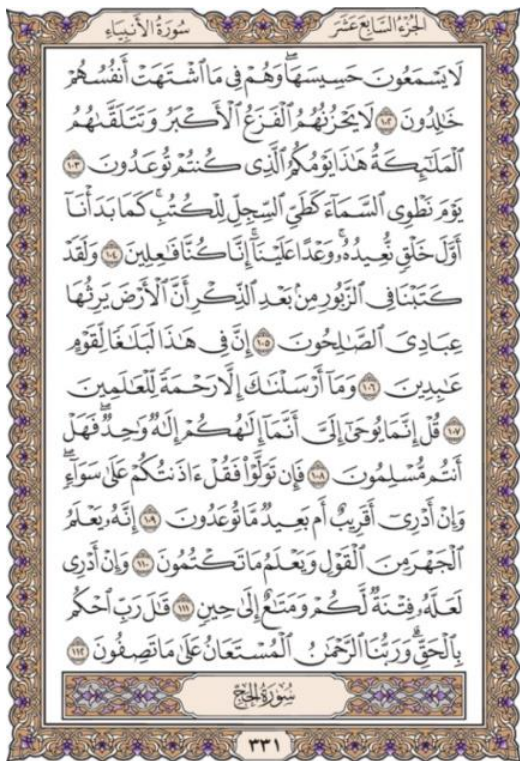 الجزء السابع عشر
سورة الأنبياء
لَا يَسْمَعُونَ حَسِيسَهَاۖ وَهُمْ فِى مَا ٱشْتَهَتْ أَنفُسُهُمْ
خَٰلِدُونَ ١٠٢ لَا يَحْزُنُهُمُ ٱلْفَزَعُ ٱلْأَكْبَرُ وَتَتَلَقَّىٰهُمُ
ٱلْمَلَٰٓئِكَةُ هَٰذَا يَوْمُكُمُ ٱلَّذِى كُنتُمْ تُوعَدُونَ ١٠٣
يَوْمَ نَطْوِى ٱلسَّمَآءَ كَطَىِّ ٱلسِّجِلِّ لِلْكُتُبِۚ كَمَا بَدَأْنَآ
أَوَّلَ خَلْقٍ نُّعِيدُهُۥۚ وَعْدًا عَلَيْنَآۚ إِنَّا كُنَّا فَٰعِلِينَ ١٠٤ وَلَقَدْ
كَتَبْنَا فِى ٱلزَّبُورِ مِنۢ بَعْدِ ٱلذِّكْرِ أَنَّ ٱلْأَرْضَ يَرِثُهَا
عِبَادِىَ ٱلصَّٰلِحُونَ ١٠٥ إِنَّ فِى هَٰذَا لَبَلَٰغًا لِّقَوْمٍ
عَٰبِدِينَ ١٠٦ وَمَآ أَرْسَلْنَٰكَ إِلَّا رَحْمَةً لِّلْعَٰلَمِينَ
١٠٧ قُلْ إِنَّمَا يُوحَىٰٓ إِلَىَّ أَنَّمَآ إِلَٰهُكُمْ إِلَٰهٌ وَٰحِدٌۖ فَهَلْ
أَنتُم مُّسْلِمُونَ ١٠٨ فَإِن تَوَلَّوْا۟ فَقُلْ ءَاذَنتُكُمْ عَلَىٰ سَوَآءٍۖ
وَإِنْ أَدْرِىٓ أَقَرِيبٌ أَم بَعِيدٌ مَّا تُوعَدُونَ ١٠٩ إِنَّهُۥ يَعْلَمُ
ٱلْجَهْرَ مِنَ ٱلْقَوْلِ وَيَعْلَمُ مَا تَكْتُمُونَ ١١٠ وَإِنْ أَدْرِى
لَعَلَّهُۥ فِتْنَةٌ لَّكُمْ وَمَتَٰعٌ إِلَىٰ حِينٍ ١١١ قَٰلَ رَبِّ ٱحْكُم
بِٱلْحَقِّۗ وَرَبُّنَا ٱلرَّحْمَٰنُ ٱلْمُسْتَعَانُ عَلَىٰ مَا تَصِفُونَ ١١٢
سورة الحج
٣٣١